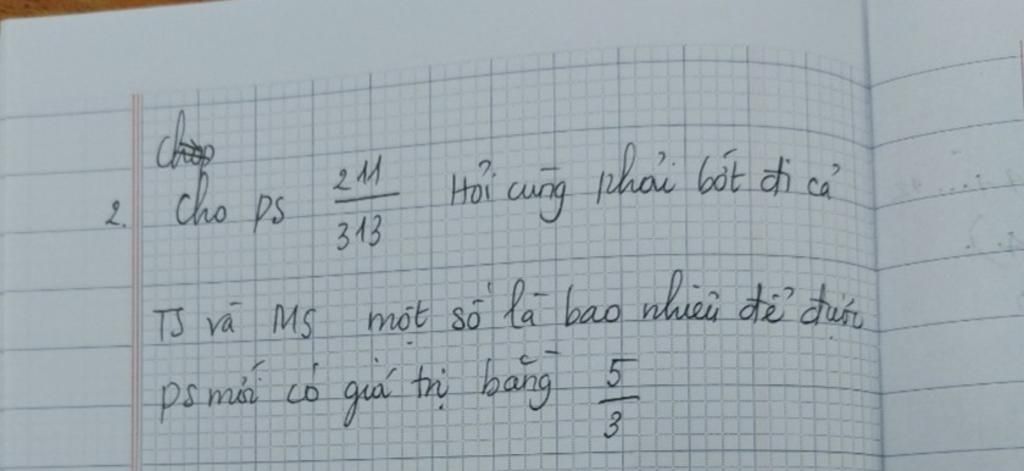 2. Cho ps 211/313 Hỏi cùng phải bớt đi cả
TS và MS một số là bao nhiêu để được
ps mới có giá trị bằng 5/3